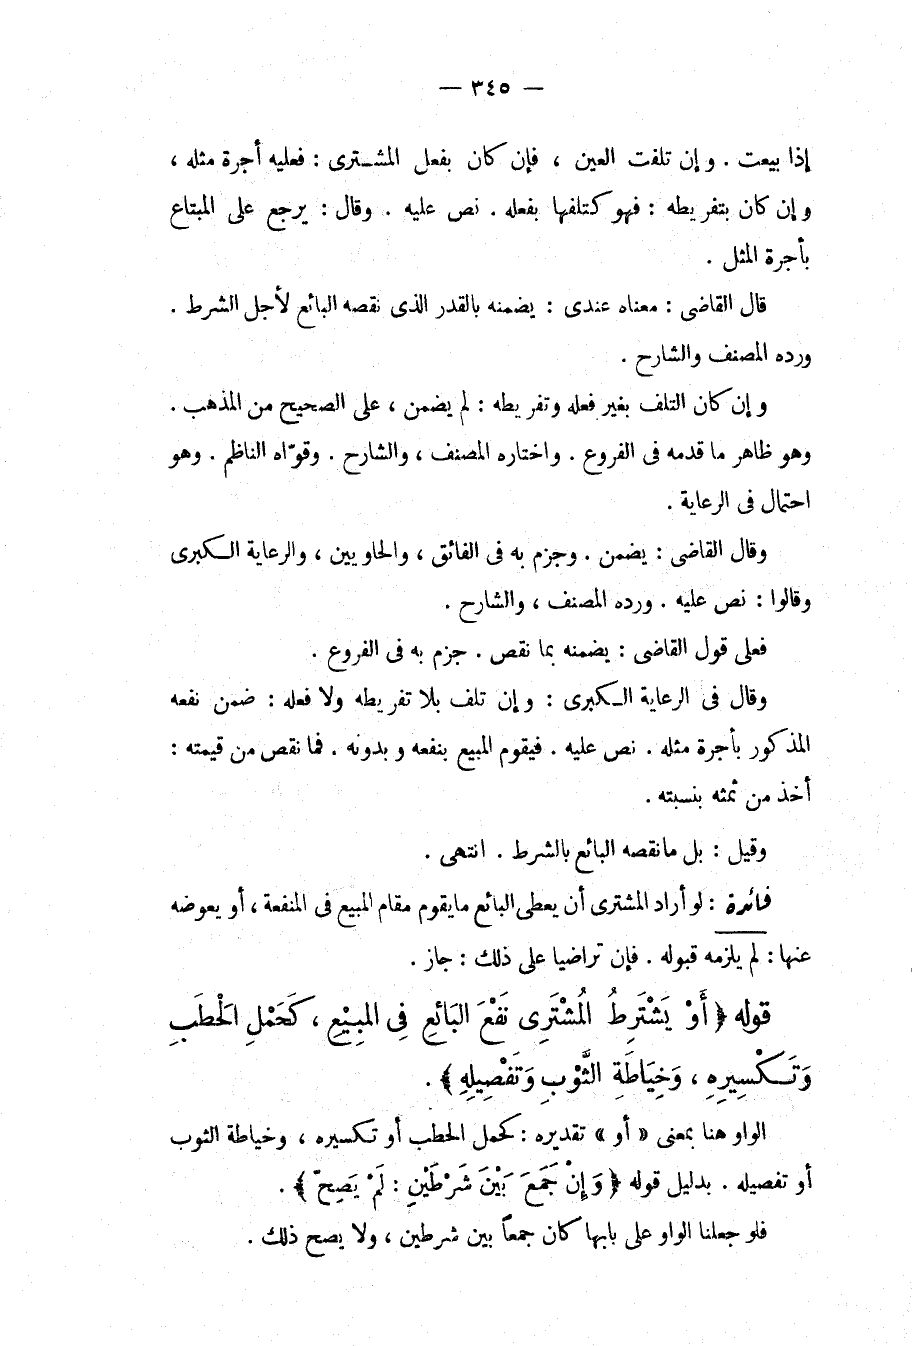 — ٣٤٥ —
إذا بيعت . وإن تلفت العين ، فإن كان بفعل المشترى : فعليه أجرة مثله ،
وإن كان بتفريطه : فهو كتلفها بفعله . نص عليه . وقال : يرجع على المبتاع
بأجرة المثل .
قال القاضى : معناه عندى : يضمنه بالقدر الذى نقصه البائع لأجل الشرط .
ورده المصنف والشارح .
وإن كان التلف بغير فعله وتفريطه : لم يضمن ، على الصحيح من المذهب .
وهو ظاهر ما قدمه فى الفروع . واختاره المصنف ، والشارح . وقوّاه الناظم . وهو
احتمال فى الرعاية .
وقال القاضى : يضمن . وجزم به فى الفائق ، والحاويين ، والرعاية الكبرى
وقالوا : نص عليه . ورده المصنف ، والشارح .
فعلى قول القاضى : يضمنه بما نقص . جزم به فى الفروع .
وقال فى الرعاية الكبرى : وإن تلف بلا تفريطه ولا فعله : ضمن نفعه
المذكور بأجرة مثله . نص عليه . فيقوم المبيع بنفعه وبدونه . فما نقص من قيمته :
أخذ من ثمنه بنسبته .
وقيل : بل ما نقصه البائع بالشرط . انتهى .
فائدة : لو أراد المشترى أن يعطى البائع ما يقوم مقام المبيع فى المنفعة ، أو يعوضه
عنها : لم يلزمه قبوله . فإن تراضيا على ذلك : جاز .
قوله ﴿ أَوْ يَشْتَرِطُ المُشْتَرِى نَفْعَ البَائِعِ فِى المَبِيْعِ ، كَحَمْلِ الحْطَبِ
وَتَكْسِيرِهِ ، وَخِيَاطَةِ الثَّوْبِ وَتَفْصِيلِهِ ﴾ .
الواو هنا بمعنى « أو » تقديره : كحمل الحطب أو تكسيره ، وخياطة الثوب
أو تفصيله . بدليل قوله ﴿ وَإِنْ جَمَعَ بَيْنَ شَرْطَيْنِ : لَمْ يَصِحّ ﴾ .
فلو جعلنا الواو على بابها كان جمعاً بين شرطين ، ولا يصح ذلك .